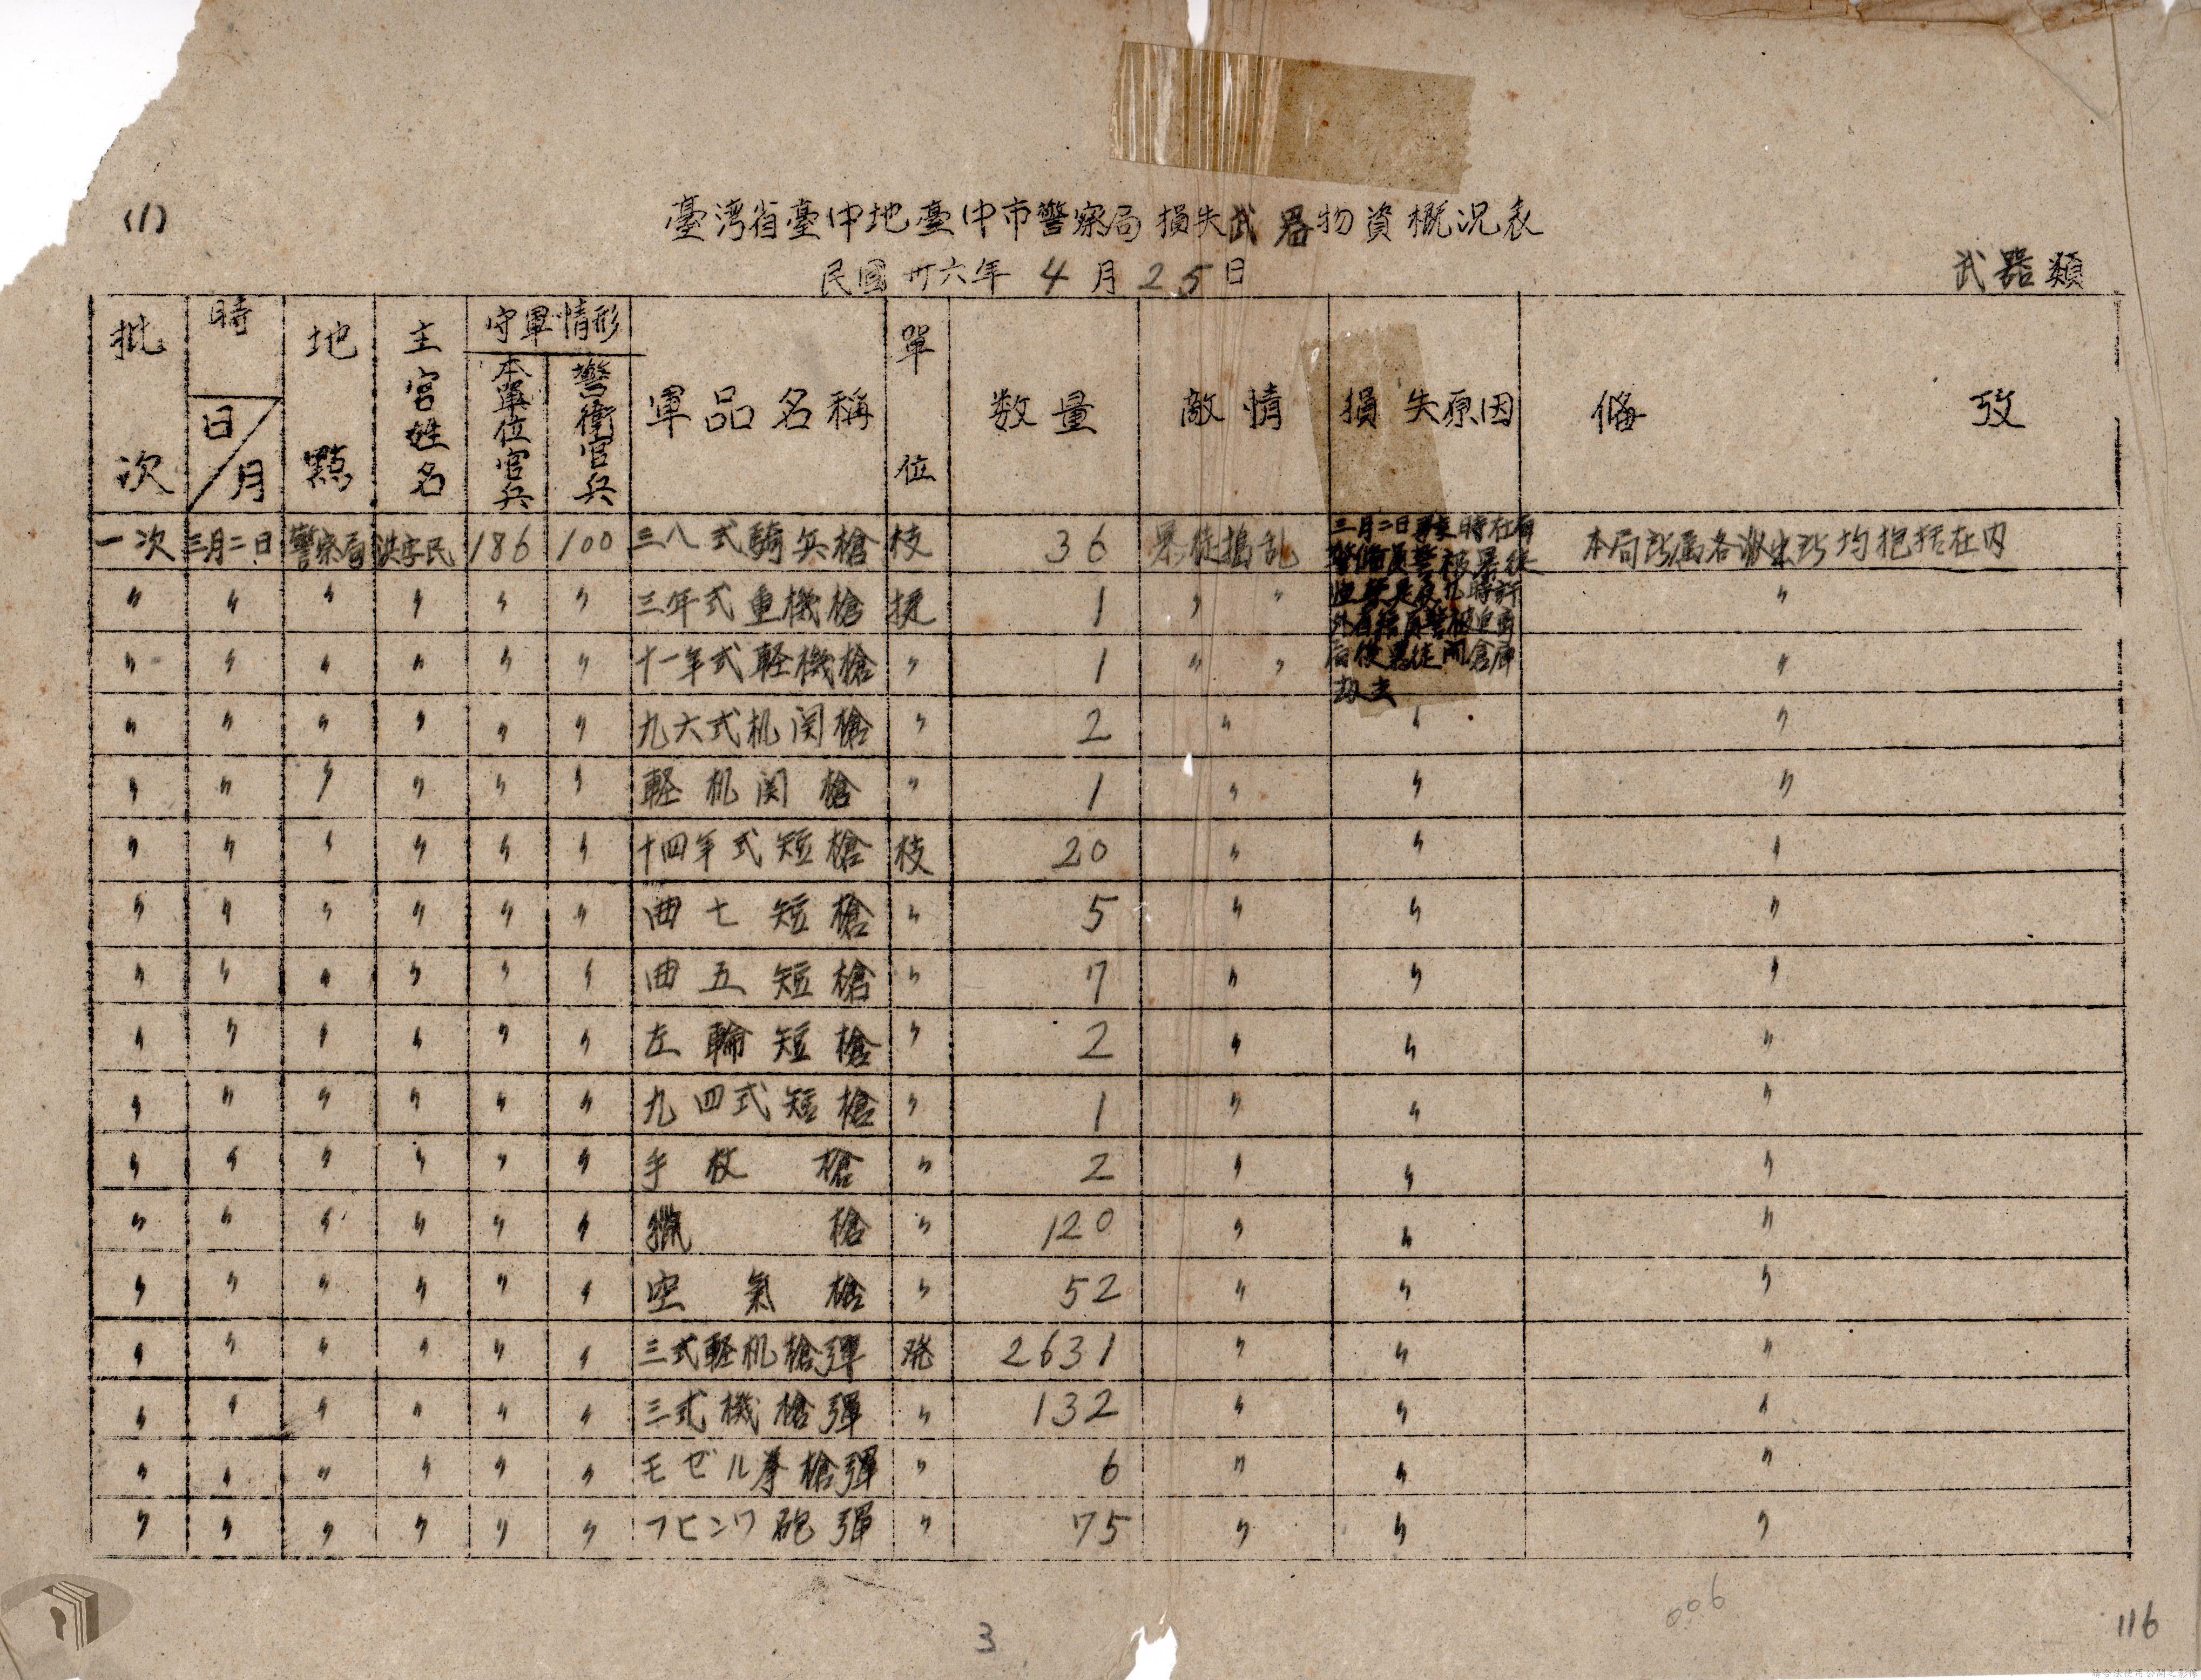 (1)
臺湾省臺中地臺中市警察局損失武器物資概況表
民國卅六年4月25日
武器類
批次 時日/月 地點 主官姓名 守軍情形 本單位官兵 警衛官兵 軍品名稱 單位 数量 敵情 損失原因 備攷
一次 三月二日 警察局 洪字民 186 100 三八式騎兵槍 枝 36 暴徒搗乱 三月二日事变時在局 本局所属各派出所均抱括在内
〃 〃 〃 〃 〃 〃 三年式重機槍 挺 1 〃 〃 〃
〃 〃 〃 〃 〃 〃 十一年式軽機槍 〃 1 〃 〃 〃
后使暴徒開倉庫
劫去
〃 〃 〃 〃 〃 〃 九六式机関槍 〃 2 〃 〃 〃
〃 〃 〃 〃 〃 〃 軽机関槍 〃 1 〃 〃 〃
〃 〃 〃 〃 〃 〃 十四年式短槍 枝 20 〃 〃 〃
〃 〃 〃 〃 〃 〃 曲七短槍 〃 5 〃 〃 〃
〃 〃 〃 〃 〃 〃 曲五短槍 〃 7 〃 〃 〃
〃 〃 〃 〃 〃 〃 左輪短槍 〃 2 〃 〃 〃
〃 〃 〃 〃 〃 〃 九四式短槍 〃 1 〃 〃 〃
〃 〃 〃 〃 〃 〃 手杖槍 〃 2 〃 〃 〃
〃 〃 〃 〃 〃 〃 獵槍 〃 120 〃 〃 〃
〃 〃 〃 〃 〃 〃 空氣槍 〃 52 〃 〃 〃
〃 〃 〃 〃 〃 〃 三式軽机槍彈 発 2631 〃 〃 〃
〃 〃 〃 〃 〃 〃 三式機槍彈 〃 132 〃 〃 〃
〃 〃 〃 〃 〃 〃 モゼル拳槍彈 〃 6 〃 〃 〃
〃 〃 〃 〃 〃 〃 フヒンワ砲彈 〃 75 〃 〃 〃
006
3
116